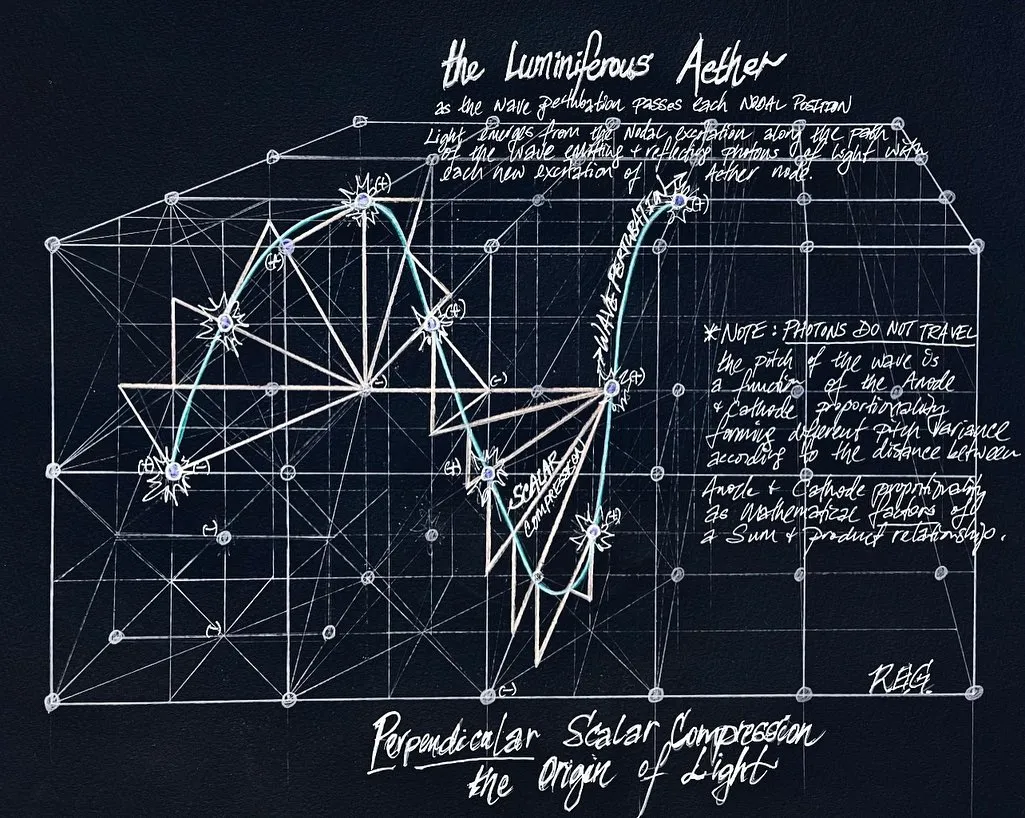 the Luminiferous Aether
as the wave perturbation passes each NODAL POSITION
Light emerges from the Nodal excitation along the path
of the wave emitting + reflecting photons of light with
each new excitation of Aether node.
WAVE PERTURBATION
(+)
(+)
(+)
(+)
(-)
(-)
(+)
(+)
(-)
(+)
SCALAR
COMPRESSION
(+)
(-)
(-)
*NOTE: PHOTONS DO NOT TRAVEL
the pitch of the wave is
a function of the Anode
+ Cathode proportionality
forming different pitch variance
according to the distance between
Anode + Cathode proportionality
as Mathematical factors of
a Sum + product relationship.
REG.
Perpendicular Scalar Compression
the Origin of Light